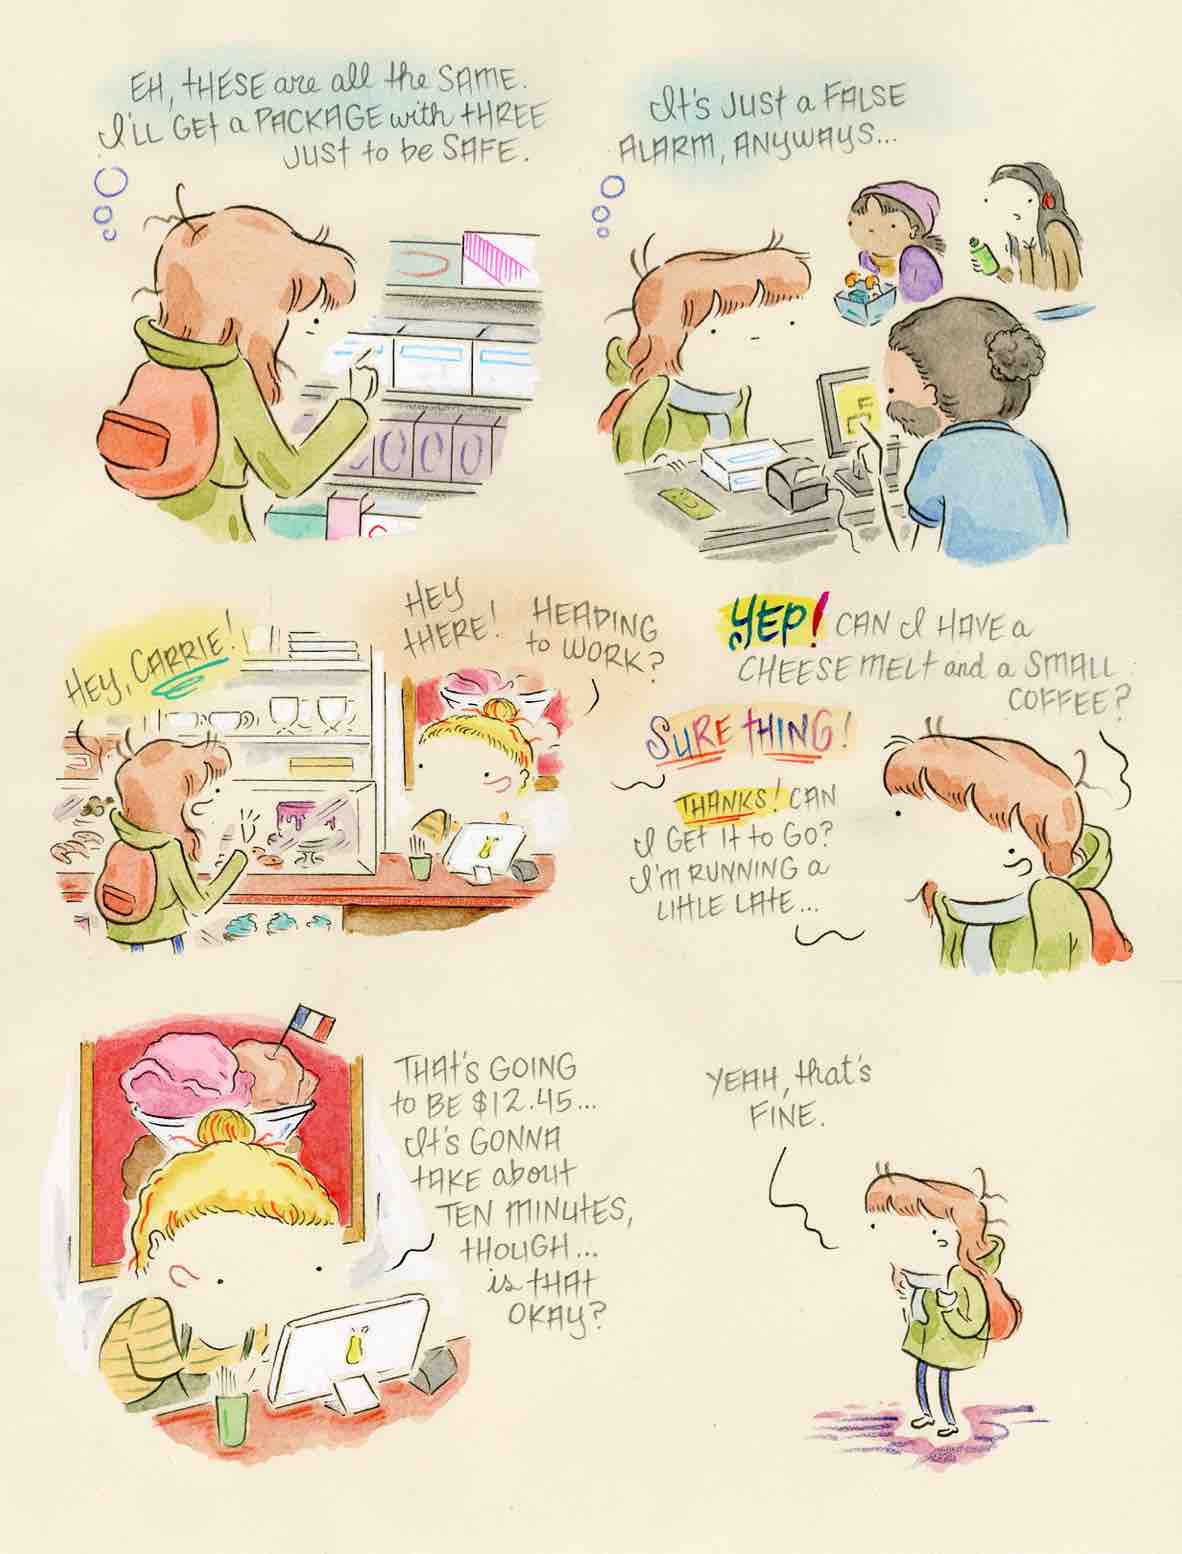 EH, tHESE are all the SAME.
I'LL GEt a PACKAGE with tHREE
JUSt to be SAFE.
It's JUSt a FALSE
ALARM, ANYWAYS...
HEY, CARRIE!
HEY
tHERE!
HEADING
to WORK?
YEP! CAN I HAVE a
CHEESE MELt and a SMALL
COFFEE?
SURE tHING!
THANKS! CAN
I GEt It to GO?
I'M RUNNING a
LIttLE LAtE...
THAt's GOING
to BE $12.45...
It's GONNA
tAKE about
TEN MINUtES,
tHOUGH...
is tHAt
OKAY?
YEAH, that's
FINE.